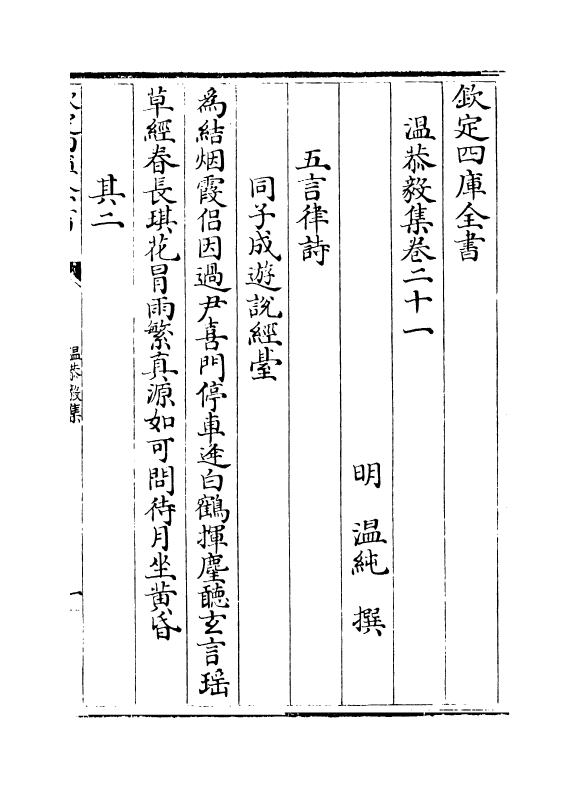 欽定四庫全書
温恭毅集卷二十一
明 温純 撰
五言律詩
同子成遊說經臺
爲結烟霞侣因過尹喜門停車逢白鶴揮麈聽玄言瑶
草經春長琪花冐雨繁真源如可問待月坐黄昏
其二
温恭毅集
一